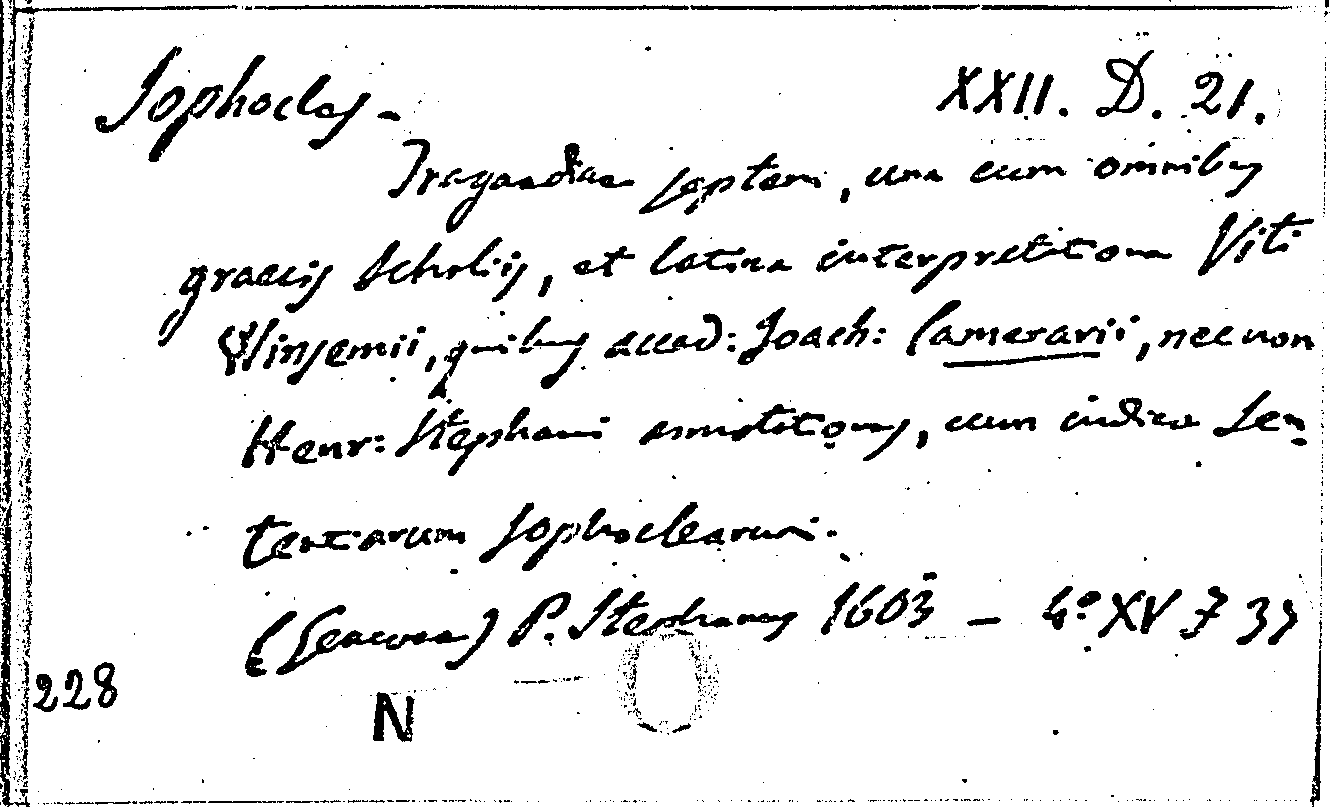 Sophocles - XXII. D. 21.
Tragoediae septem, una cum omnibus
graecis Scholiis, et latina interpretatione Viti
Winsemii, quibus acced: Joach: Camerarii, nec non
Henr: Stephani annotationes, cum indice Sen-
tentiarum Sophoclearum.
(Genevae) P. Stephanus 1603 - 4º XV 7 39
228
N